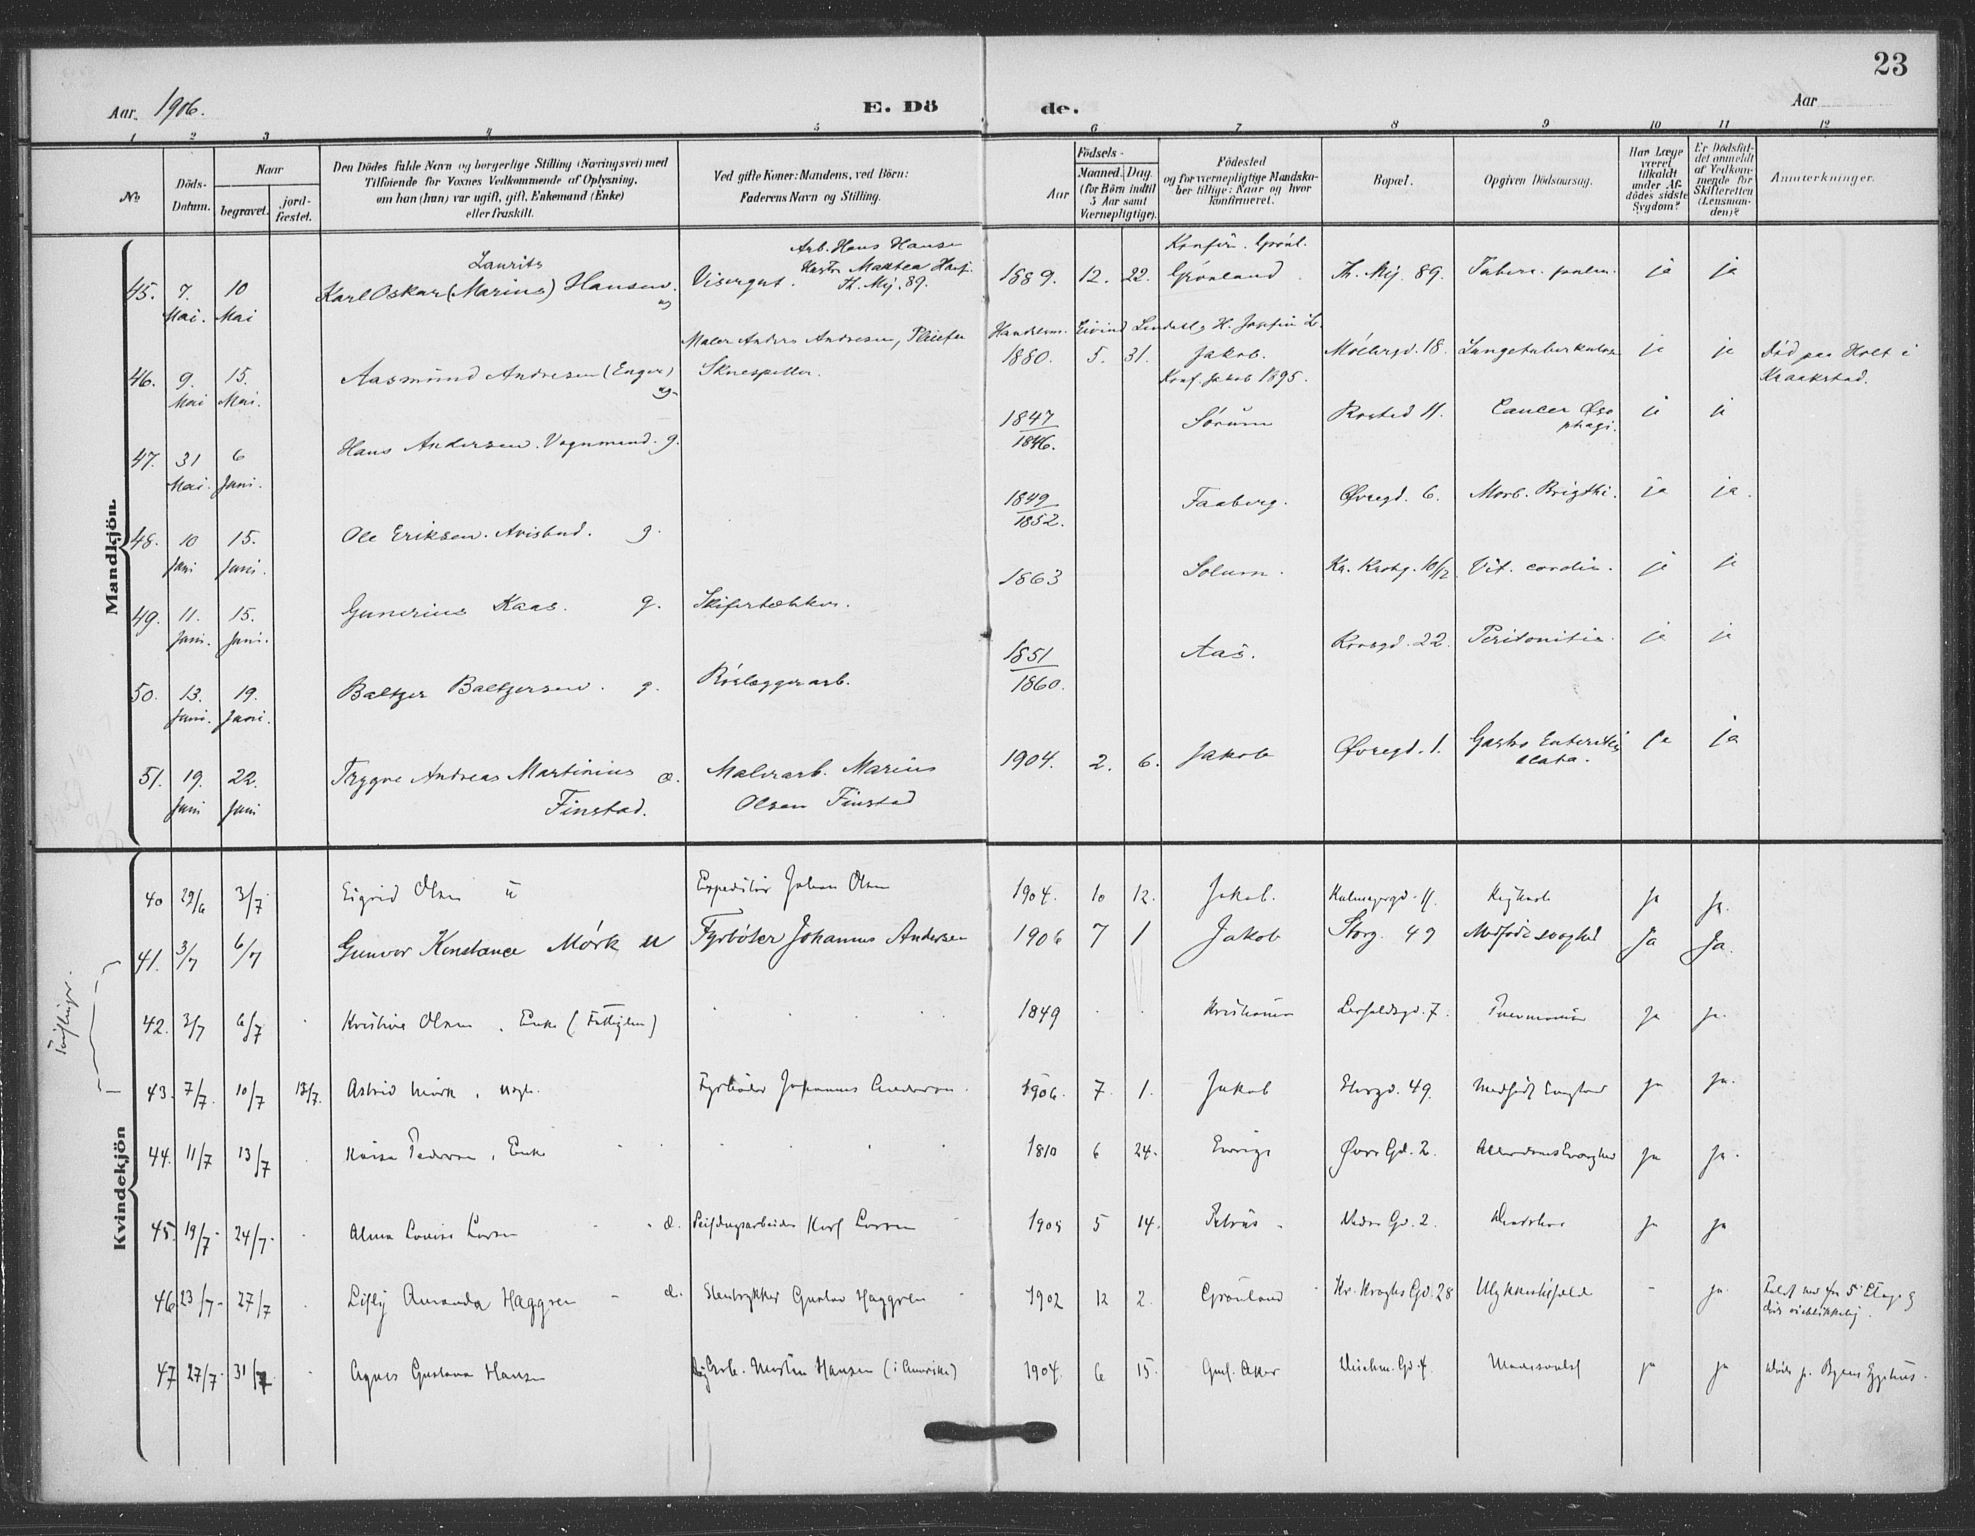 23
Aar 1906.
E. Dö de.
Aar
1 2 3 4 5 6 7 8 9 10 11 12
No
Döds-Datum.
Naar
begravet. jord-fæstet.
Den Dödes fulde Navn og borgerlige Stilling (Næringsvei) med
Tilföiende for Voxnes Vedkommende af Oplysning,
om han (hun) var ugift, gift, Enkemand (Enke)
eller fraskilt.
Ved gifte Koner: Mandens, ved Börn:
Faderens Navn og Stilling.
Födsels-
Aar
Maaned. Dag.
(for Börn indtil
5 Aar samt
Værnepligtige).
Födested
og for værnepligtige Mandska-
ber tillige: Naar og hvor
konfirmeret.
Bopæl.
Opgiven Dödsaarsag.
Har Læge
været
tilkaldt
under Af-
dödes sidste
Sygdom?
Er Dödsfal-
det anmeldt
af Vedkom-
mende for
Skifteretten
(Lensman-
den)?
Anmerkninger.
Mandkjön.
Arb. Hans Hansen
Konfir. Grønl.
Laurits
45. 7. Mai. 10 Mai Karl Oskar (Marius) Hansen. ug Visergut. Th. Mej. 89. 1889. 12. 22. Grønland Th. Mej. 89. Tuberc. pulm. ja ja
Maler Anders Andresen,
46. 9. Mai 15. Mai. Aasmund Andresen (Enger) ug. Skuespiller. 1880. 5. 31. Jakob. Konf. Jakob 1895. Møllergd. 18. Lungetuberkulose ja ja Död paa Holt i Kraakstad.
47. 31 Mai. 6 Juni. Hans Andersen. Vognmand. g. 1847 1846. Sørum Rosted 11. Cancer Øsophagi. ja ja
48. 10 Juni 15. Juni. Ole Eriksen. Avisbud. g. 1849 1852. Faaberg. Øvregd. 6. Morb. Brigthi. ja ja.
49. 11. Juni. 15. Juni. Gunerius Kaas. g. Skifertækker. 1863 Solum. Kr. Krohg. 10/12 Vit. cordis. ja ja
50. 13. Juni. 19. Juni. Baltzer Baltzersen. g. Rørlæggerarb. 1851 1860. Aas. Korsgd. 22. Peritonitis. ja ja
51. 19. Juni 22. Juni Trygve Andreas Martinius Finstad. æ. Malerarb. Marius Olsen Finstad 1904. 2. 6. Jakob Øvregd. 1. Gastro Enteritis acuta. ja ja
Kvindekjön
40 29/6 3/7 Sigrid Olsen u Expeditør Johan Olsen 1904. 10 12. Jakob. Kalmeyergd. 11. Kighoste ja ja.
41. 3/7 6/7 Gunvor Konstance Mørk u Fyrbøter Johannes Andersen 1906 7 1 Jakob Storg. 49 Medfødt svaghed Ja Ja.
42. 3/7 6/7 Kristine Olsen, Enke (Fattiglem) 1849 Kristiania 7. Pneumonie ja ja.
Tvillinger.
43. 7/7. 10/7 13/7. Astrid Mørk, Fyrbøder Johannes Andersen. 1906. 7. 1. Jakob Storgd. 49. Medfødt Svaghed ja ja.
44. 11/7 13/7 Pedersen, Enke 1810 6 24. Sverige Øvre Gd. 2. Alderdomssvaghed ja ja.
45. 19/7. 24/7. Alma Lovise Larsen æ. Karl Larsen 1905 5 14. Petrus Nedre Gd. 2. ja ja
46 23/7. 27/7 Lilly Amanda Haggren æ. Stentrykker Gustav Haggren 1902 12 2. Grønland Kr. Kroghs Gd. 28 Ulykkestilfælde - ja. Faldt ned fra 5 Etage & döde øieblikkelig.
47 27/7. 31/7 Agnes Gustava Hansen Martin Hansen (i Amerika) 1904. 6 15. Gml. Aker Gd. 4 ja ja Döde p. Byens Sygehus.